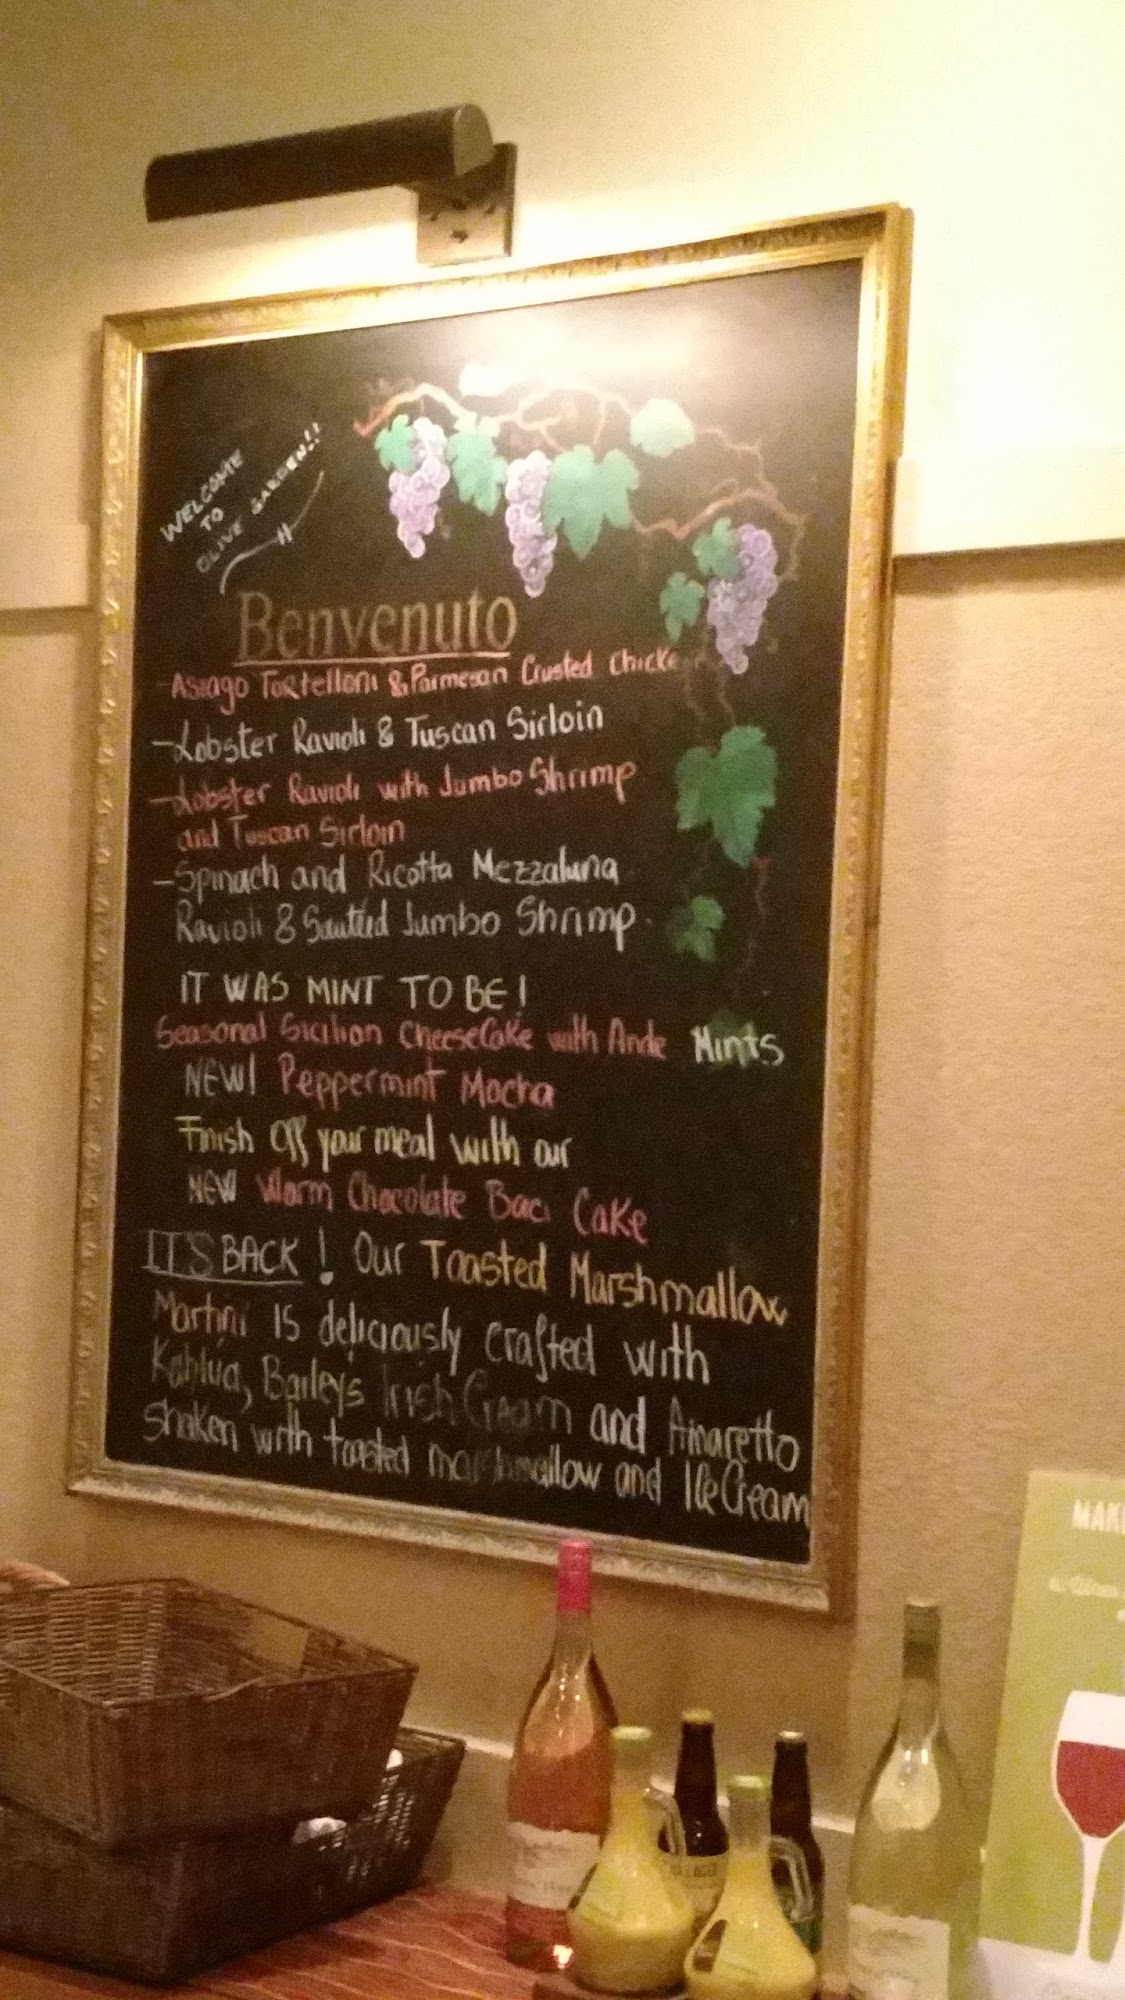 WELCOME
TO
OLIVE GARDEN!!
Benvenuto
-Asiago Tortelloni & Parmesan Crusted Chicken
-Lobster Ravioli & Tuscan Sirloin
-Lobster Ravioli with Jumbo Shrimp
and Tuscan Sirloin
-Spinach and Ricotta Mezzaluna
Ravioli & Sautéed Jumbo Shrimp.
IT WAS MINT TO BE!
Seasonal Sicilian CheeseCake with Ande Mints
NEW! Peppermint Mocha
Finish off your meal with our
NEW Warm Chocolate Baci Cake
IT'S BACK! Our Toasted Marshmallow
Martini is deliciously crafted with
Kahlúa, Bailey's Irish Cream and Amaretto
shaken with toasted marshmallow and Ice Cream
MAK